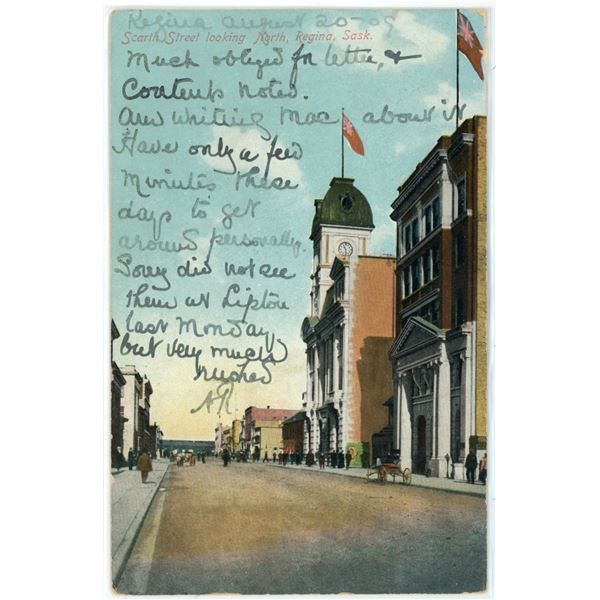 Regina August 20-09
Scarth Street looking North, Regina, Sask.
Much obliged for letter, +
Contents noted.
Am writing Mac about it
Have only a few
Minutes these
days to get
around personally.
Sorry did not see
them at Lipton
last Monday
but very much
rushed
AR